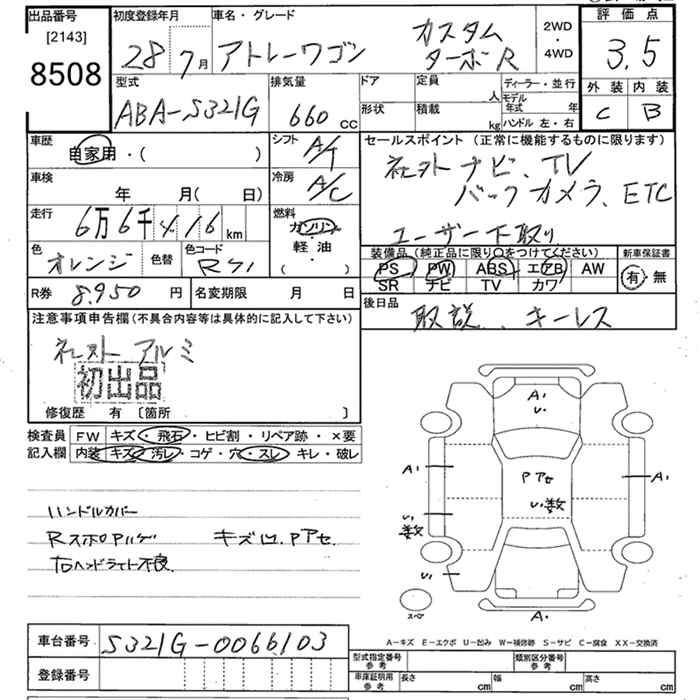 出品番号 初度登録年月 車名・グレード 2WD・4WD 評価点
[2143]
8508 28年7月 アトレーワゴン カスタム ターボR 3.5
外装 内装
C B
型式 排気量 ドア 定員 人 ディーラー・並行
ABA-S321G 660 cc 形状 積載 kg モデル年式 年
ハンドル 左・右
車歴 自家用・( ) シフト A/T セールスポイント(正常に機能するものに限ります)
車検 年 月( 日) 冷房 A/C 社外ナビ、TV
バックカメラ、ETC
走行 6万6千416km 燃料 ガソリン・軽油・( ) ユーザー下取り
色 オレンジ 色替 色コード 装備品(純正品に限り○をつけてください) 新車保証書
PS PW ABS エアB AW 有・無
SR ナビ TV カワ
R券 8,950円 名変期限 月 日 後日品
取説、キーレス
注意事項申告欄(不具合内容等は具体的に記入して下さい)
社外アルミ
初出品
修復歴 有 〔箇所 〕
検査員記入欄 FW キズ・飛石・ヒビ割・リペア跡・×要
内装 キズ・汚レ・コゲ・穴・スレ・キレ・破レ
A1
U1
A1 PアセA1
U1数
U1
数
U1
スペア
A1
ハンドルカバー
キズ凹、Pアセ
右ヘッドライト不良
車台番号 S321G-0066103
登録番号
A-キズ E-エクボ U-凹み W-補修跡 S-サビ C-腐食 XX-交換済
型式指定番号 参考 類別区分番号 参考
車庫証明用 参考 長さ cm 幅 cm 高さ cm